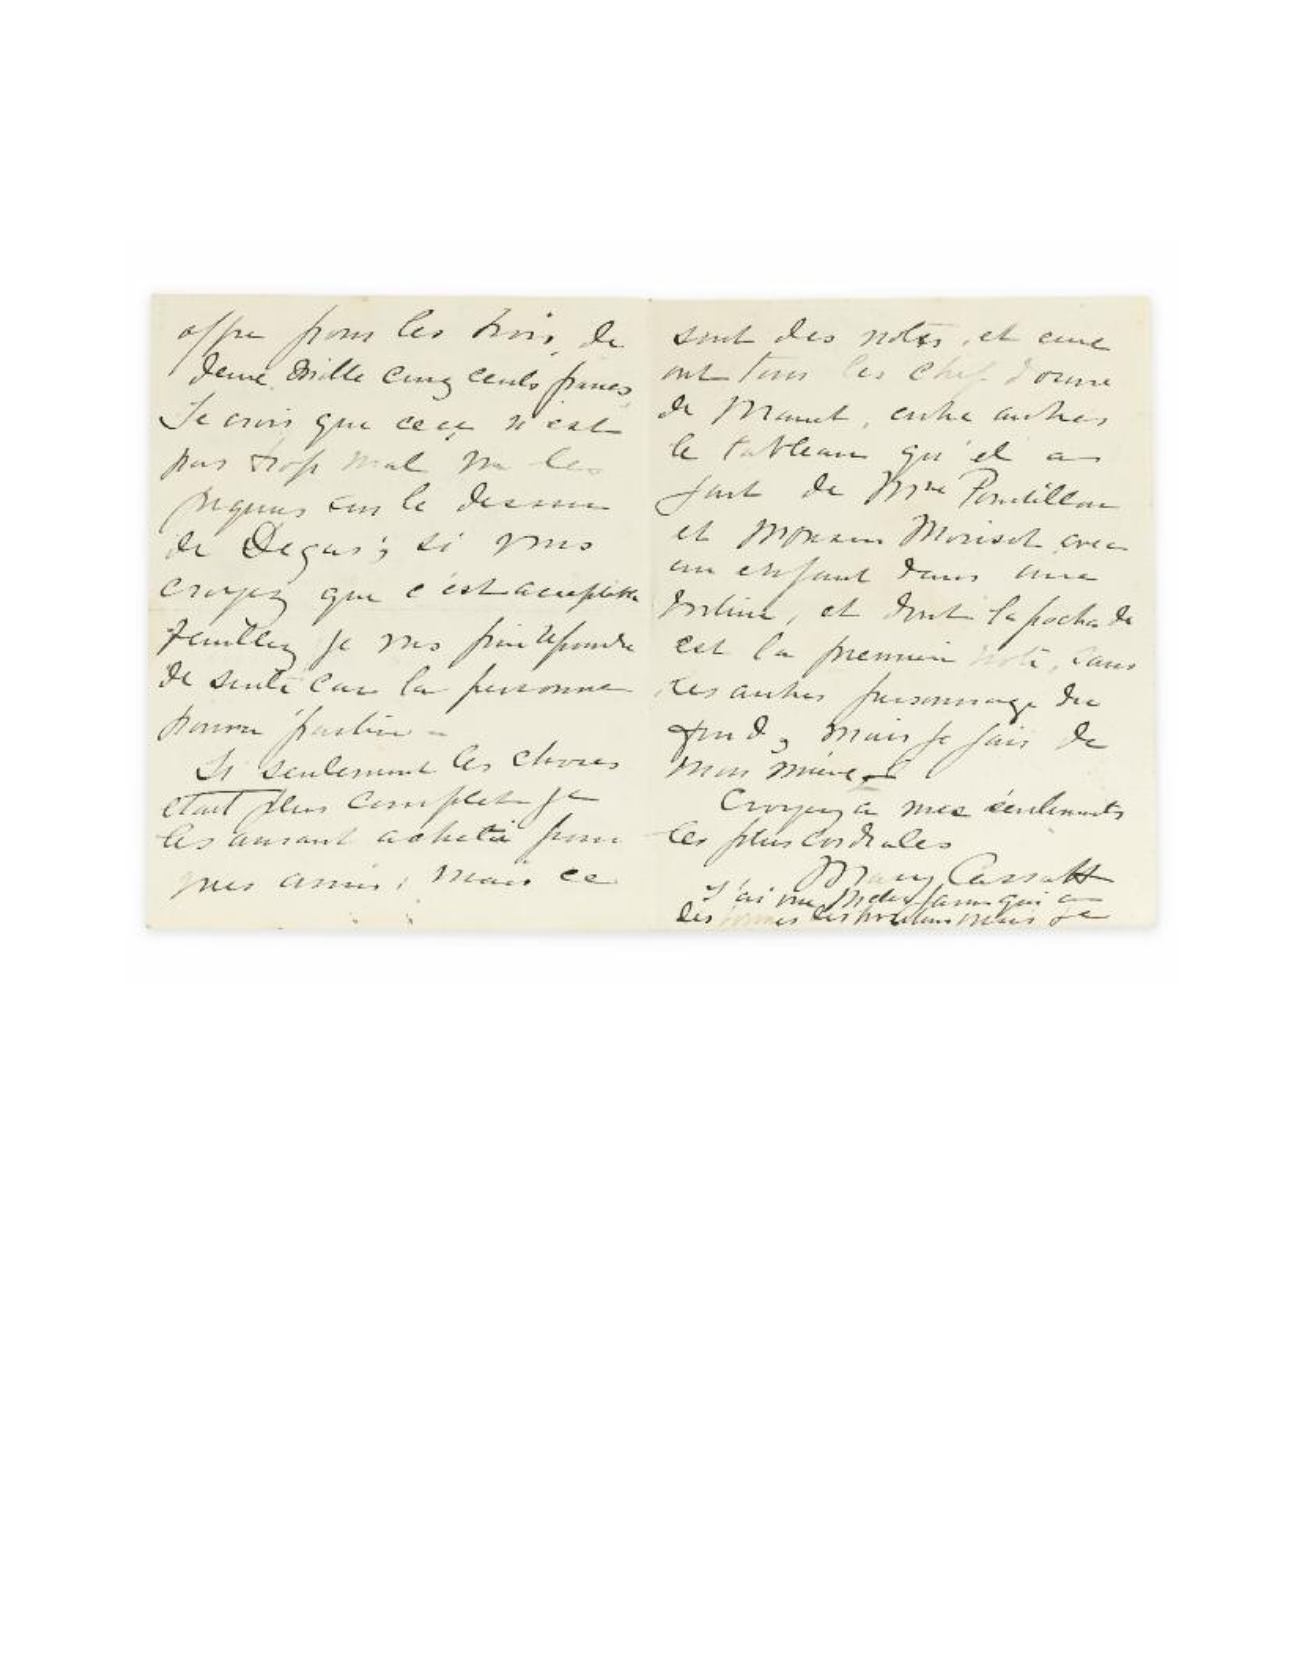 offre pour les trois, de
deux mille cinq cents francs,
Je crois que ceci n'est
pas trop mal vu les
piqures sur le dessin
de Degas; si vous
croyez que c'est acceptable
veuillez je vous prie répondre
de suite car la personne
pourra partir –
Si seulement les choses
etait plus complet je
les aurait acheté pour
mes amis; mais ce
sont des notes, et eux
ont tous les chef d'ouvre
de Manet, entre autres
le tableau qu'il a
fait de Mme Pontillon
et Monsieur Morisot avec
un enfant dans une
voiture, et dont la pochade
est la premier note, sans
les autres personnage du
fond, mais je fais de
mon mieux
Croyez a mes sentiments
les plus cordiales
Mary Cassatt
J'ai vu qui a
les mais je